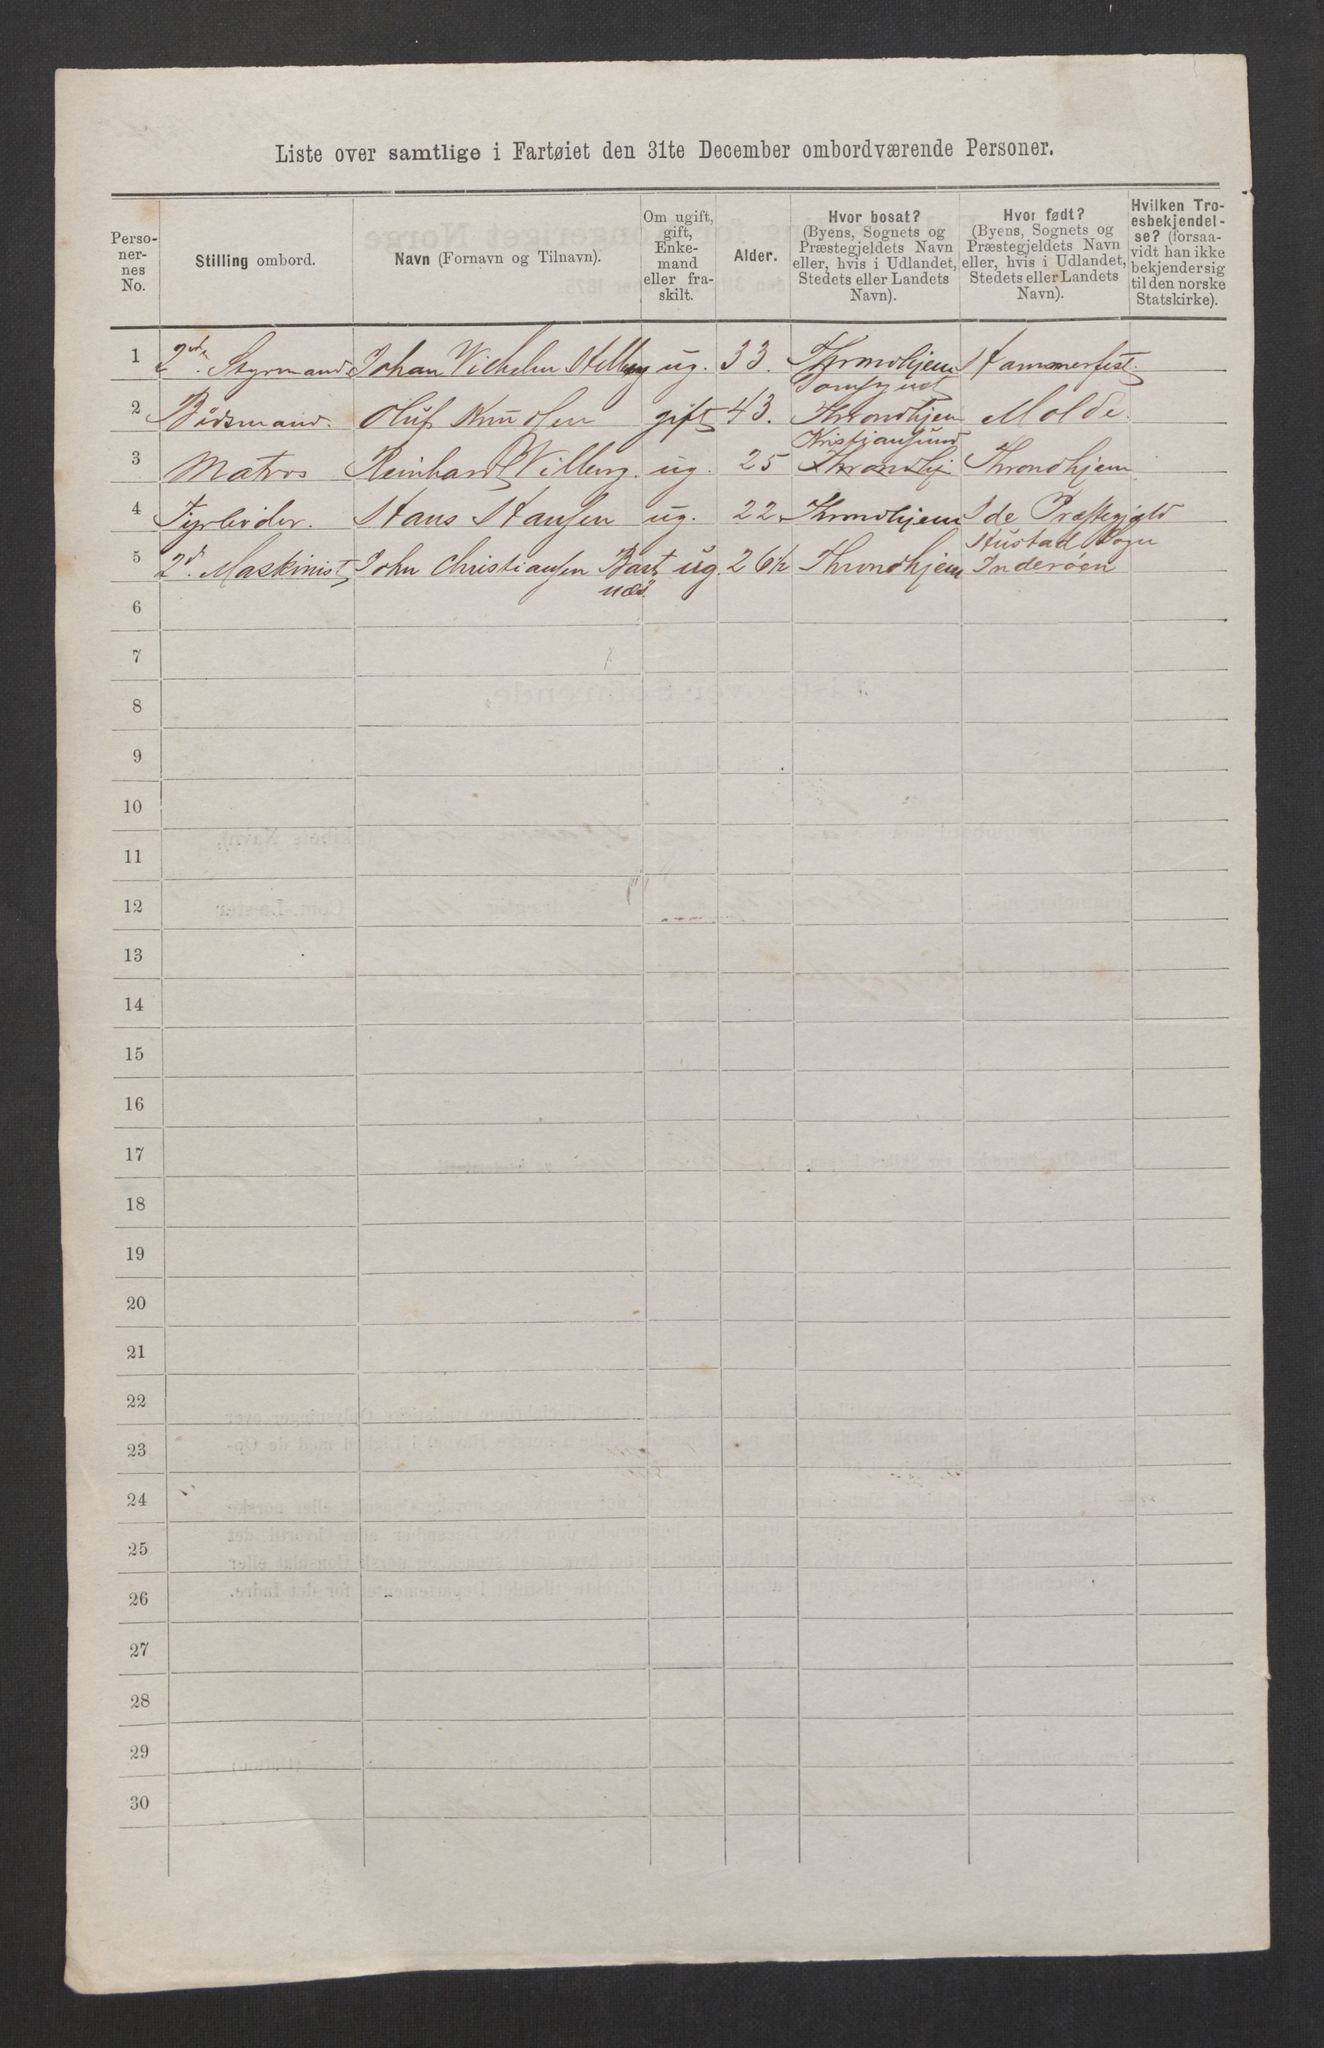 Liste over samtlige i Fartøiet den 31te December ombordværende Personer.
Perso-
ner-
nes
No.
Stilling ombord.
Navn (Fornavn og Tilnavn).
Om ugift,
gift,
Enke-
mand
eller fra-
skilt.
Alder.
Hvor bosat?
(Byens, Sognets og
Præstegjeldets Navn
eller, hvis i Udlandet,
Stedets eller Landets
Navn).
Hvor født?
(Byens, Sognets og
Præstegjeldets Navn
eller, hvis i Udlandet,
Stedets eller Landets
Navn).
Hvilken Tro-
esbekjendel-
se? (forsaa-
vidt han ikke
bekjender sig
til den norske
Statskirke).
1 Styrmand Johan Vilhelm ug. 33. Throndhjem Hammerfest.
2 Baadsmand. Oluf Knudsen gift 43. Throndhjem Molde.
Kristiansund
3 Matros Reinhardt Wilberg. ug. 25 Throndhj Throndhjem
4 Fyrbøder. Hans Hansen ug. 22. Throndhjem Ide Præstegjeld
Hustad Sogn
5 2d. Maskinist John Christiansen Bart ug. 26½ Throndhjem Inderøen
næs.
6
7
8
9
10
11
12
13
14
15
16
17
18
19
20
21
22
23
24
25
26
27
28
29
30